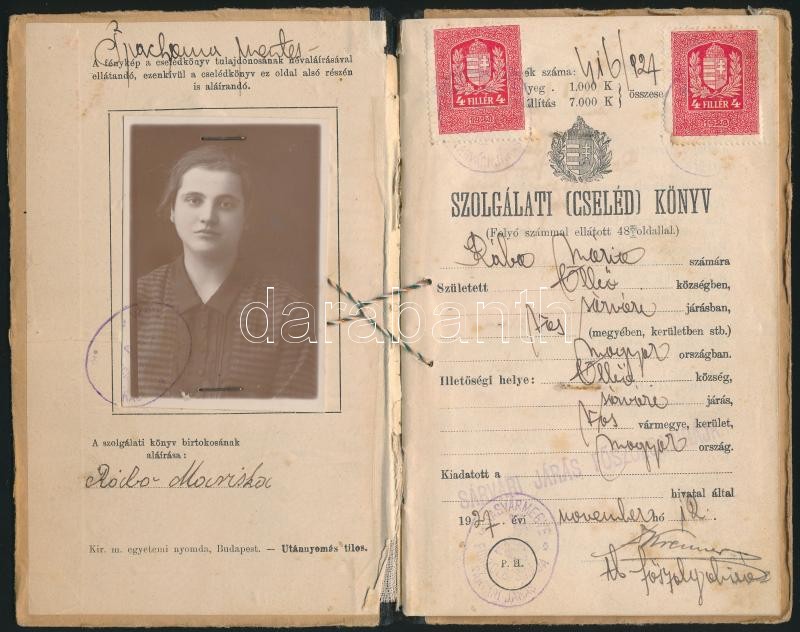 A fénykép a cselédkönyv tulajdonosának névaláírásával
ellátandó, ezenkívül a cselédkönyv ez oldal alsó részén
is aláirandó.
A szolgálati könyv birtokosának
aláírása:
Rába Mariska
Kir. m. egyetemi nyomda, Budapest. — Utánnyomás tilos.
4 FILLÉR 4
4 FILLÉR 4
száma: 416/924
1.000 K
7.000 K
SZOLGÁLATI (CSELÉD) KÖNYV
(Folyó számmal ellátott 48 oldallal.)
Rába Mária számára
Született községben,
sárvári járásban,
Vas (megyében, kerületben stb.)
magyar országban.
Illetőségi helye: község,
sárvári járás,
Vas vármegye, kerület,
magyar ország.
Kiadatott a
SÁRVÁRI JÁRÁS
hivatal által
1927 évi november hó 12.
P. H.
darabanth.com